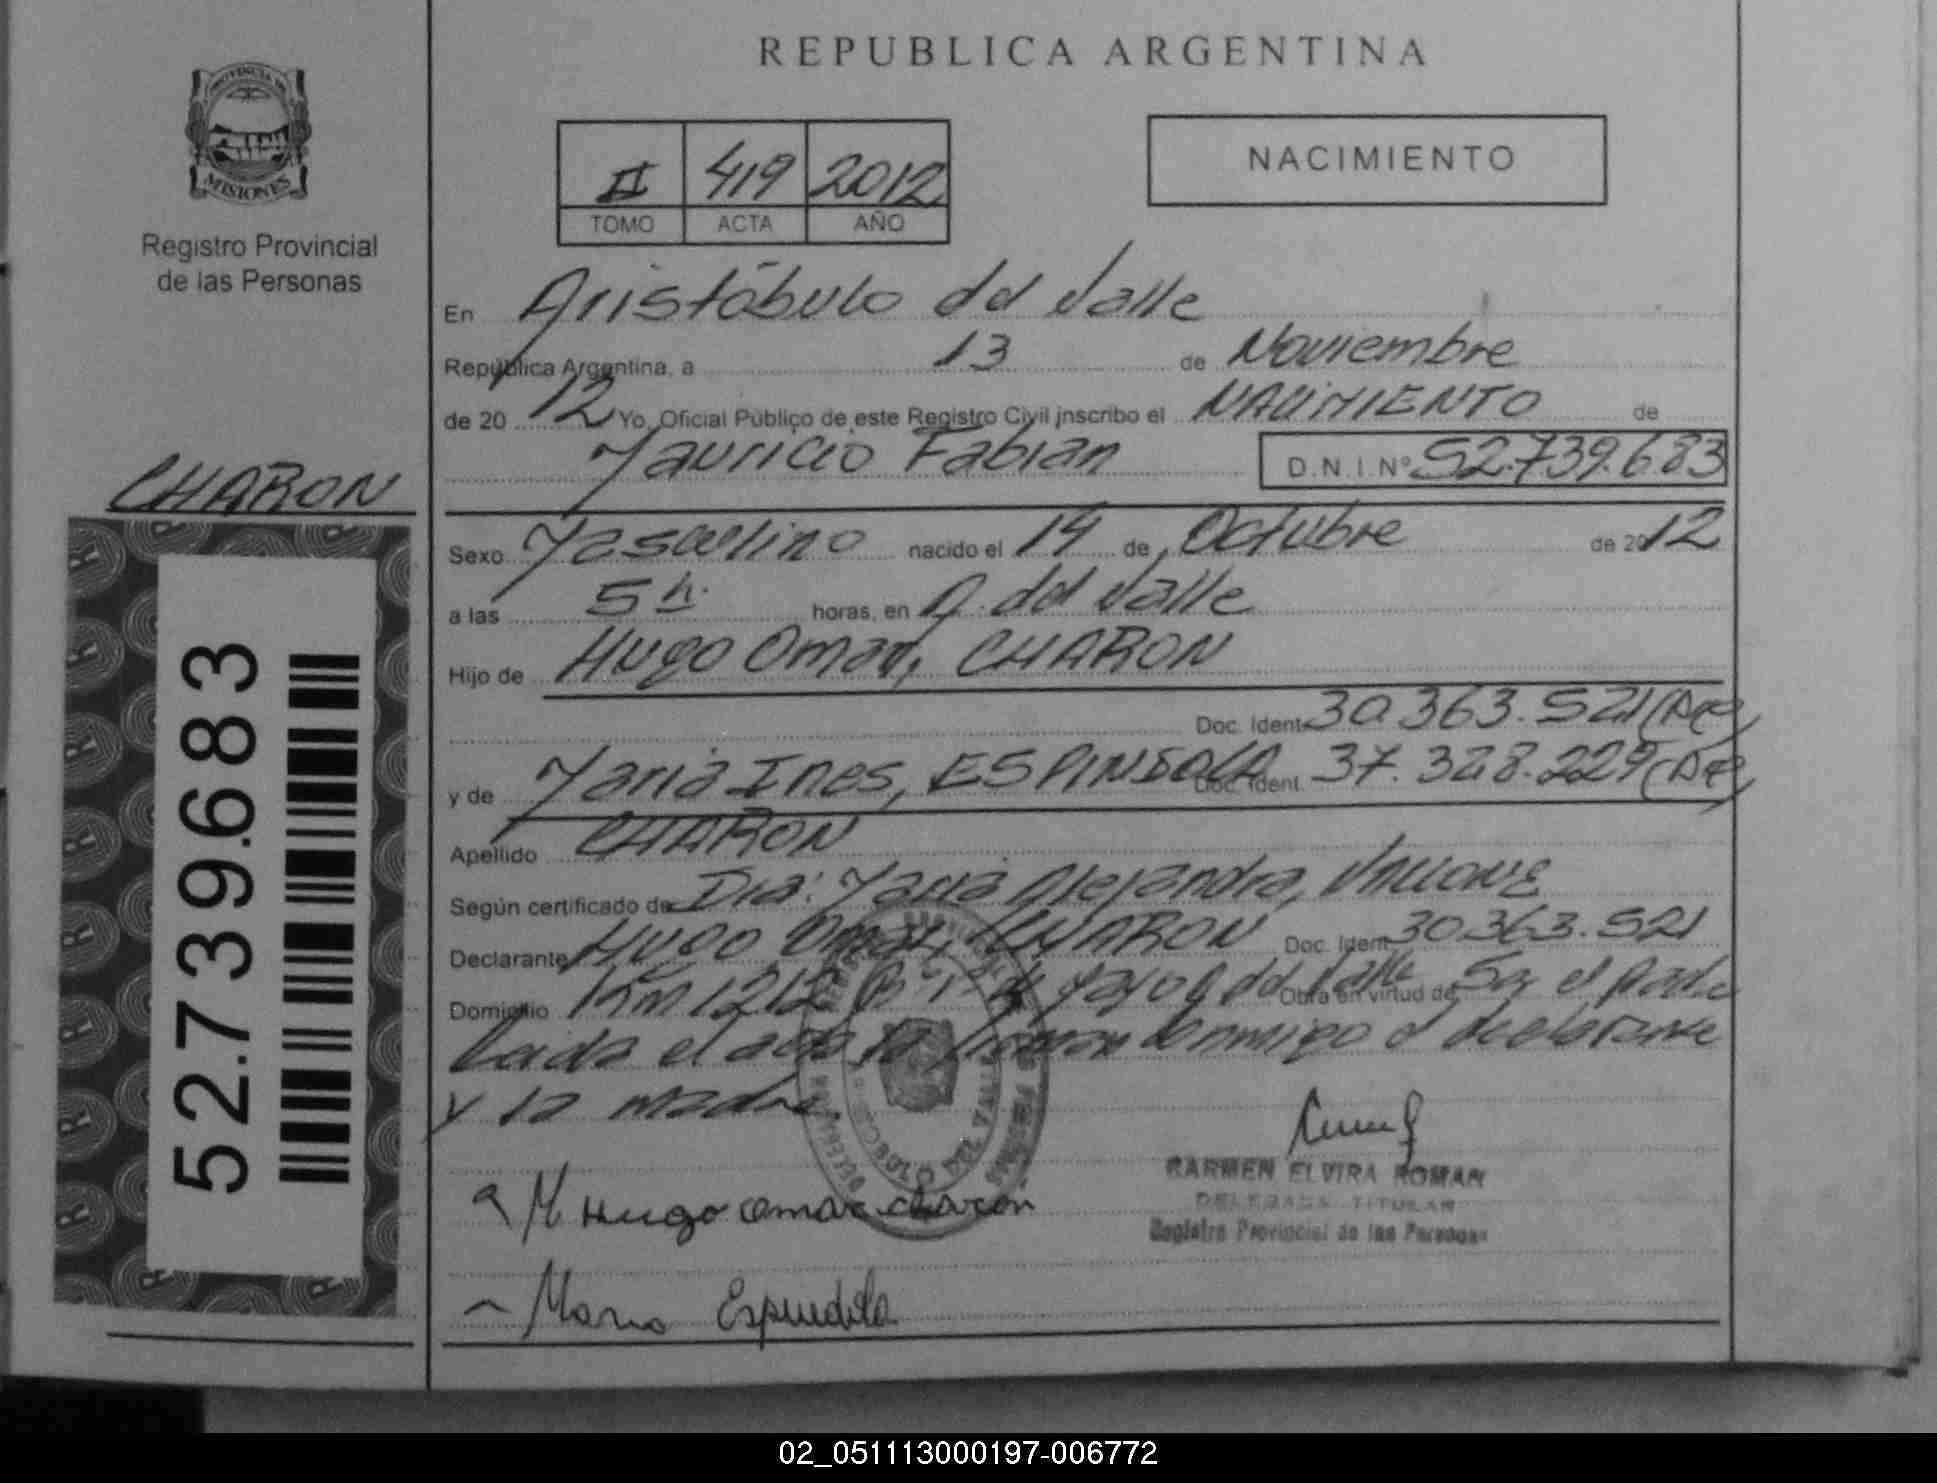 REPUBLICA ARGENTINA
PROVINCIA DE
MISIONES
Registro Provincial
de las Personas
II 419 2012
TOMO ACTA AÑO
NACIMIENTO
En Aristóbulo del Valle
República Argentina, a 13 de Noviembre
de 20 12 Yo, Oficial Público de este Registro Civil inscribo el NACIMIENTO de
Mauricio Fabian D.N.I.Nº 52.739.683
CHARON
52.739.683
Sexo Masculino nacido el 14 de Octubre de 2012
a las 5 h. horas, en A. del Valle
Hijo de Hugo Omar, CHARON
Doc. Ident. 30.363.521 (Arg)
y de Maria Ines, ESPINDOLA Doc. Ident. 37.328.229 (Arg)
Apellido CHARON
Según certificado de Dra: Maria Alejandra,
Declarante Hugo Omar, CHARON Doc. Ident. 30.363.521
Domicilio Km 1212 Bº 1º de Mayo A. del Valle Obra en virtud de Ser el padre
Leida el acta la firman conmigo el declarante
y la madre.
Hugo Omar charón
CARMEN ELVIRA ROMAN
DELEGADA TITULAR
Registro Provincial de las Personas
Maria Espindola
02_051113000197-006772